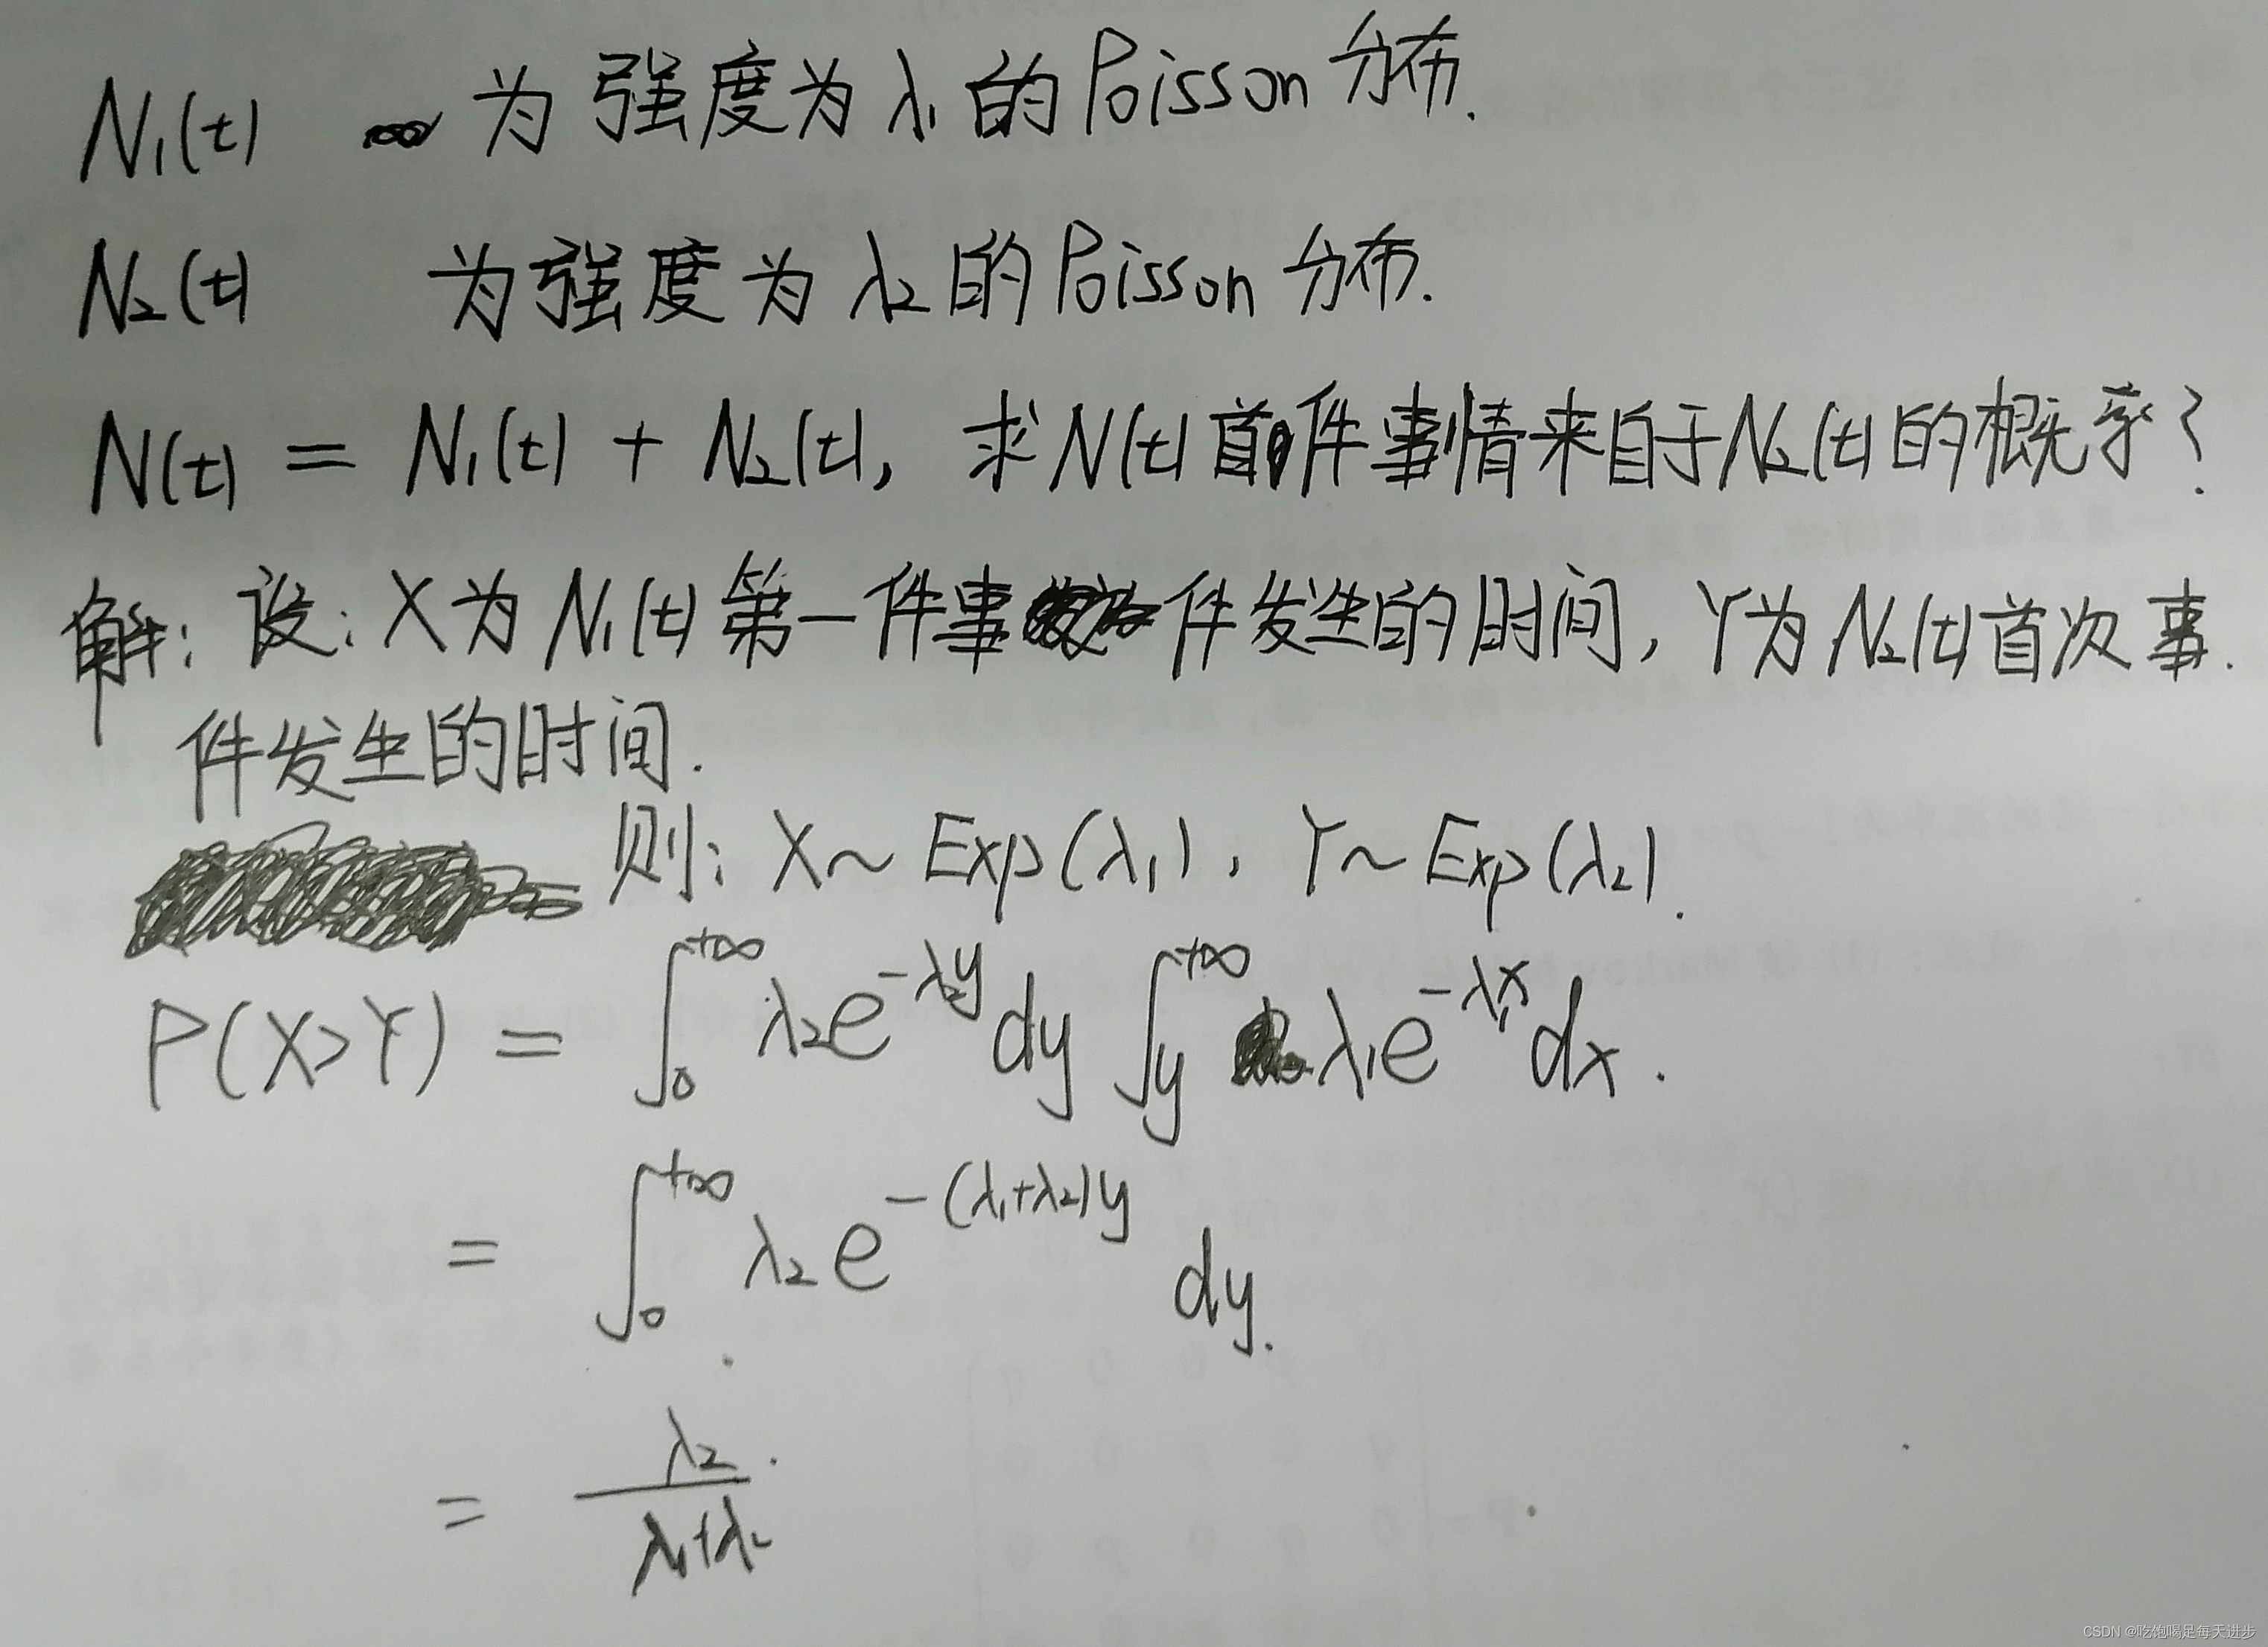 N₁(t) 为强度为λ₁的Poisson分布.
N₂(t) 为强度为λ₂的Poisson分布.
N(t) = N₁(t) + N₂(t), 求N(t)首件事情来自于N₂(t)的概率?
解: 设: X为N₁(t)第一件事件发生的时间, Y为N₂(t)首次事.
件发生的时间.
则: X~Exp(λ₁), Y~Exp(λ₂).
P(X>Y) = ∫₀^{+∞} λ₂e^{-λ₂y}dy ∫_y^{+∞} λ₁e^{-λ₁x}dx.
= ∫₀^{+∞} λ₂e^{-(λ₁+λ₂)y} dy.
= λ₂/(λ₁+λ₂)
CSDN @吃饱喝足每天进步